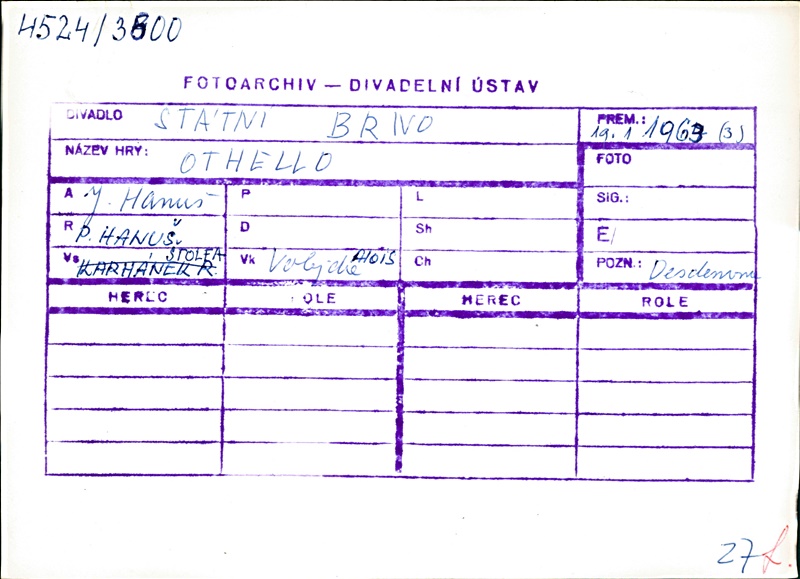 4524/3600
FOTOARCHIV — DIVADELNÍ ÚSTAV
DIVADLO STÁTNI BRNO
PREM.: 19. 1 1963 (3)
NÁZEV HRY: OTHELLO
FOTO
A J. Hanuš P L SIG.:
R P. HANUŠ. D Sh É/
STOLFA
Vs KARHÁNEK R. Vk Alois Ch POZN.: Desdemona
HEREC OLE HEREC ROLE
27